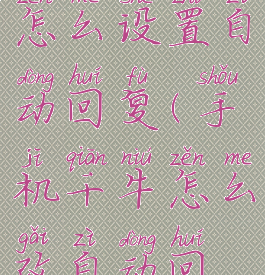 zěn me shè zhì zì
怎么设置自
dòng huí fù shǒu
动回复(手
jī qiān niú zěn me
机千牛怎么
gǎi zì dòng huí
改自动回